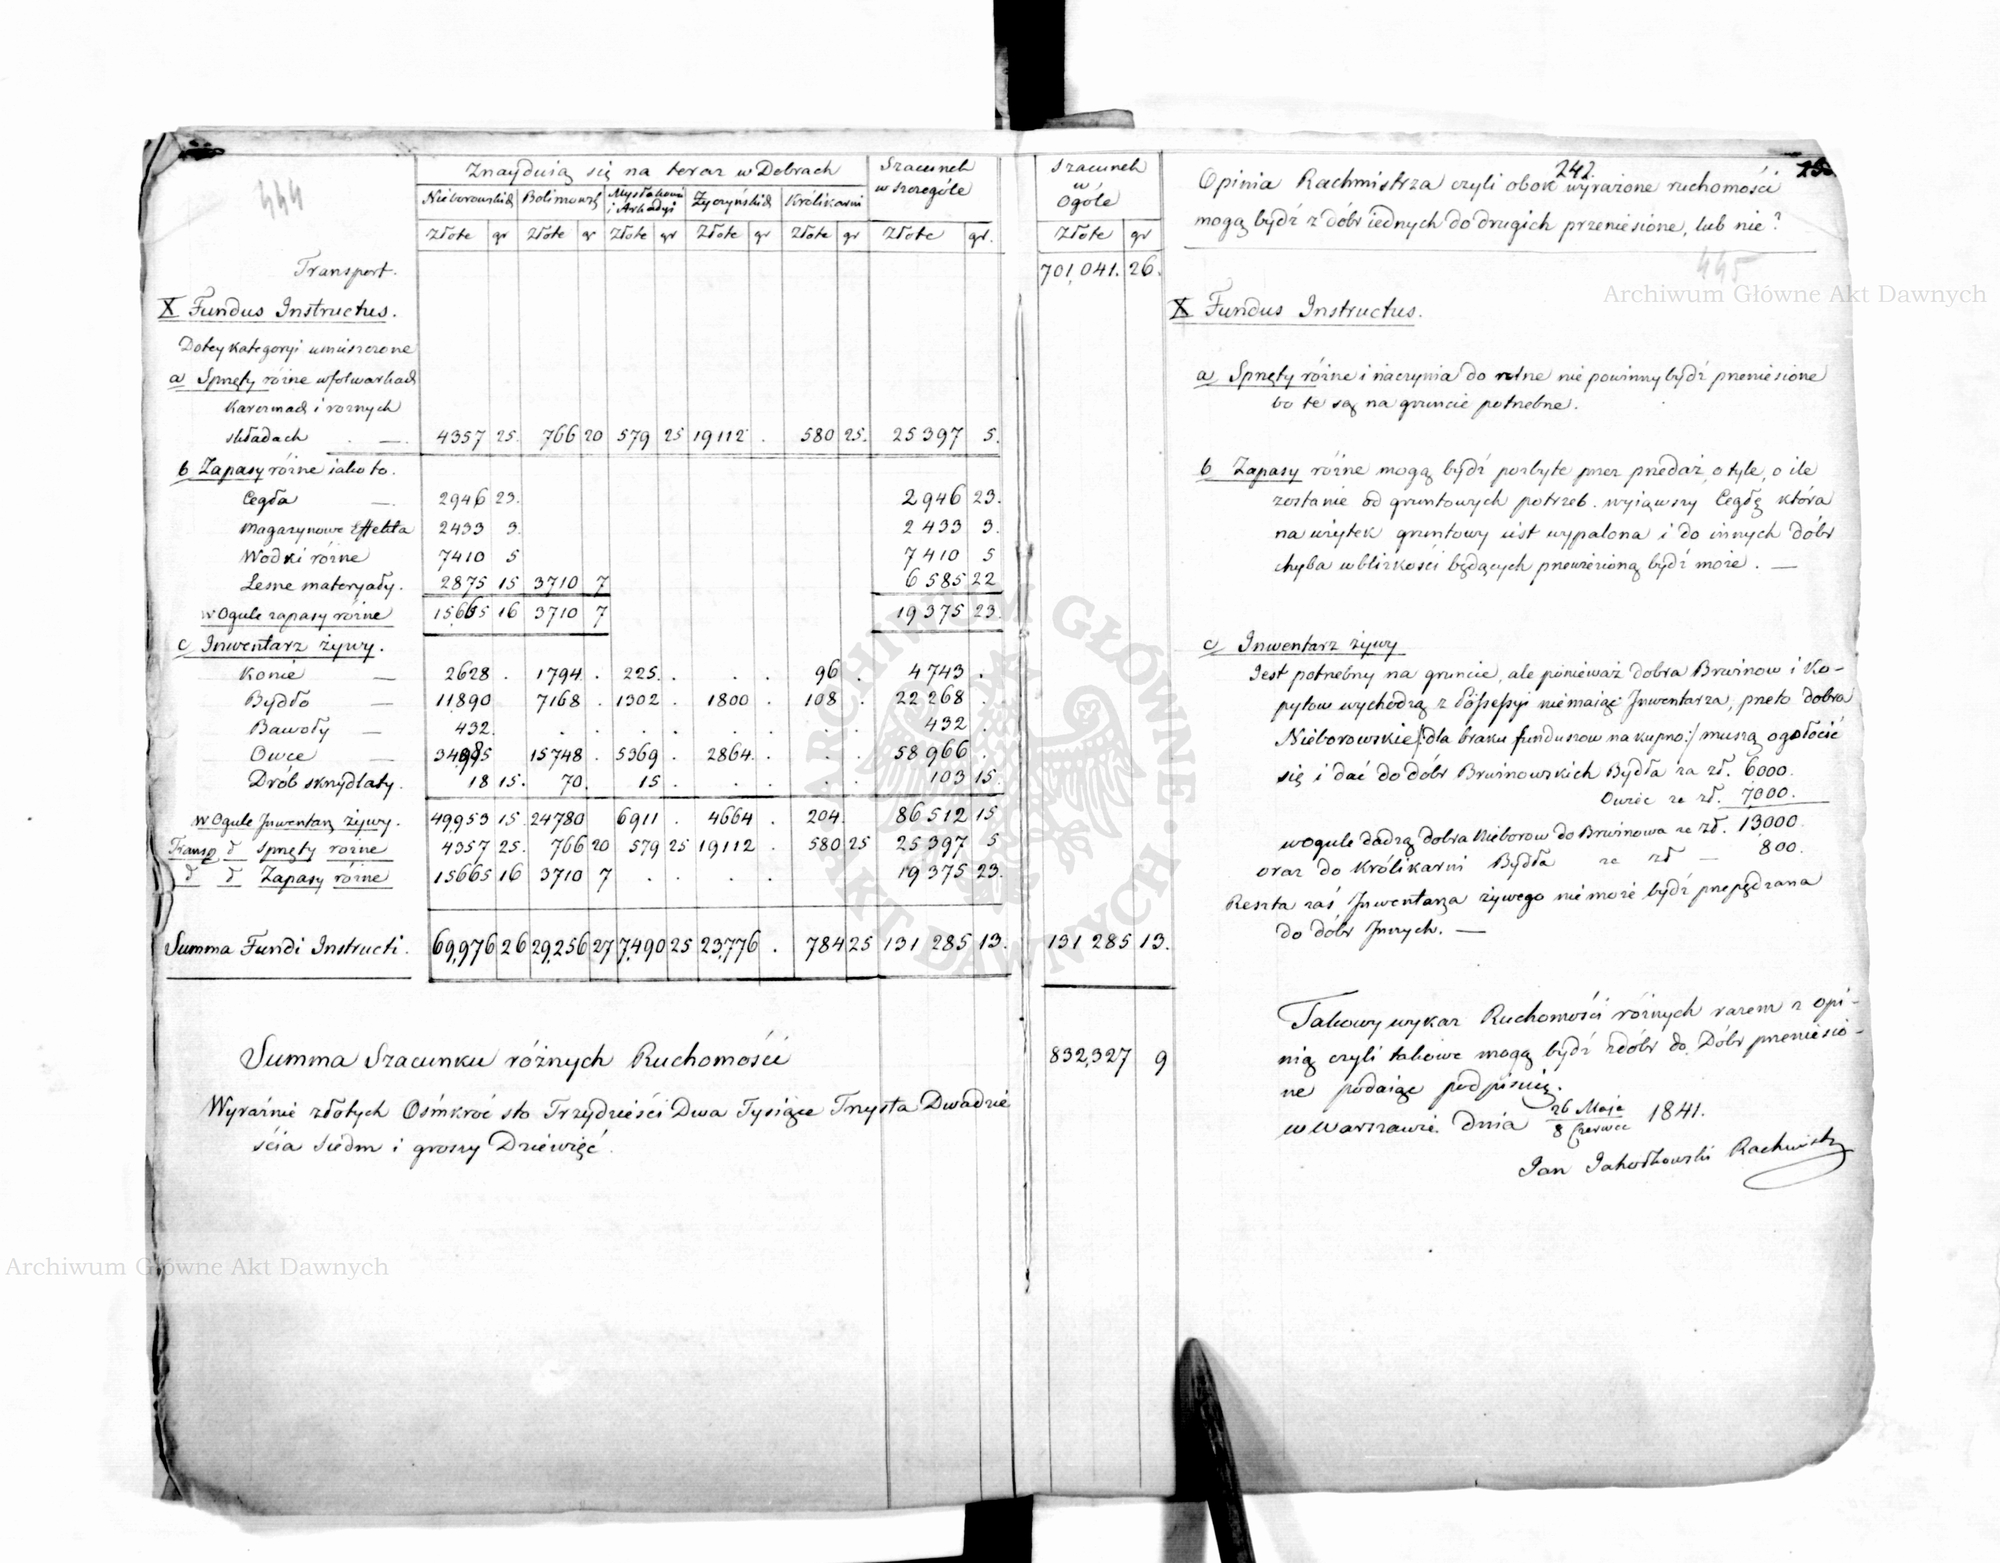 444
Znayduią się na teraz w Dobrach | Szacunek
w szczególe
Nieborowskich | Bolimowsk | Mysłakowi
i Arkadyi | Zyczyńskich | Królikarni
Złote | gr | Złote | gr | Złote | gr | Złote | gr | Złote | gr | Złote | gr.
Transport.
X Fundus Instructus.
Do tey kategoryi umieszczone
a Sprzęty różne w folwarkach
Karczmach i roznych
składach . — 4357 25. 766 20 579 25 19112 . 580 25. 25397 5.
b Zapasy różne iako to.
Cegła — 2946 23. 2946 23.
Magazynowe Effekta 2433 3. 2433 3.
Wodki różne 7410 5 7410 5
Lesne materyały. 2875 15 3710 7 6585 22
w Ogule zapasy różne 15,665 16 3710 7 19375 23.
c Inwentarz żywy.
Konie — 2628 . 1794 . 225. . . . 96 . 4743 .
Bydło — 11,890 7168 . 1302 . 1800 . 108 . 22268 .
Bawoły — 432. . . . . . . . . 432 .
Owce — 34985 15748 . 5369 . 2864. . . . 58966 .
Drób skrzydlaty. 18 15. 70. 15 . . . . . 103 15.
w Ogule Inwentarz żywy. 49,953 15. 24780 6911 . 4664 . 204. 86512 15
Transp. d Sprzęty rożne 4357 25. 766 20 579 25 19112 . 580 25 25397 5
d d Zapasy różne 15665 16 3710 7 . . . . 19375 23.
Summa Fundi Instructi. 69,976 26 29,256 27 7,490 25 23,776 . 784 25 131 285 13.
Summa Szacunku różnych Ruchomości
Wyraźnie złotych Ośmkroć sto Trzydzieści Dwa Tysiące Trzysta Dwadzie
ścia siedm i groszy Dziewięć.
Szacunek
w
Ogóle
Złote | gr
701,041. 26.
131 285 13.
832,327 9
242.
Opinia Rachmistrza czyli obok wyrażone ruchomości
mogą bydź z dóbr iednych do drugich przeniesione, lub nie?
445
X Fundus Instructus.
a Sprzęty różne i naczynia do rolne nie powinny bydź przeniesione
bo te są na gruncie potrzebne.
b Zapasy różne mogą bydź pozbyte przez przedaż, o tyle, o ile
zostanie od gruntowych potrzeb. wyiąwszy Cegłę która
na użytek gruntowy iest wypalona i do innych dóbr
chyba w blizkości będących przewiezioną bydź może. —
c Inwentarz żywy
Jest potrzebny na gruncie, ale ponieważ dobra Brwinow i Ko-
pytow wychodzą z Possessyi nie maiąc Inwentarza, przeto dobra
Nieborowskie /:dla braku funduszow na kupno:/ muszą ogołocić
się i dać do dóbr Brwinowskich Bydła za zł. 6000.
Owiec za zł. 7000.
wogule dadzą dobra Nieborow do Brwinowa za zł. 13,000.
oraz do Królikarni Bydła za zł — 800.
Reszta zaś Inwentarza żywego nie może bydź przepędzana
do dóbr Innych. —
Takowy wykaz Ruchomości różnych razem z opi-
nią czyli takowe mogą bydź z dóbr do Dóbr przeniesio-
ne podaiąc podpisuię.
w Warszawie. dnia 26 Maja / 8 Czerwca 1841.
Jan Jakotkowski Rachmistrz
Archiwum Główne Akt Dawnych
Archiwum Główne Akt Dawnych
ARCHIWUM GŁÓWNE AKT DAWNYCH